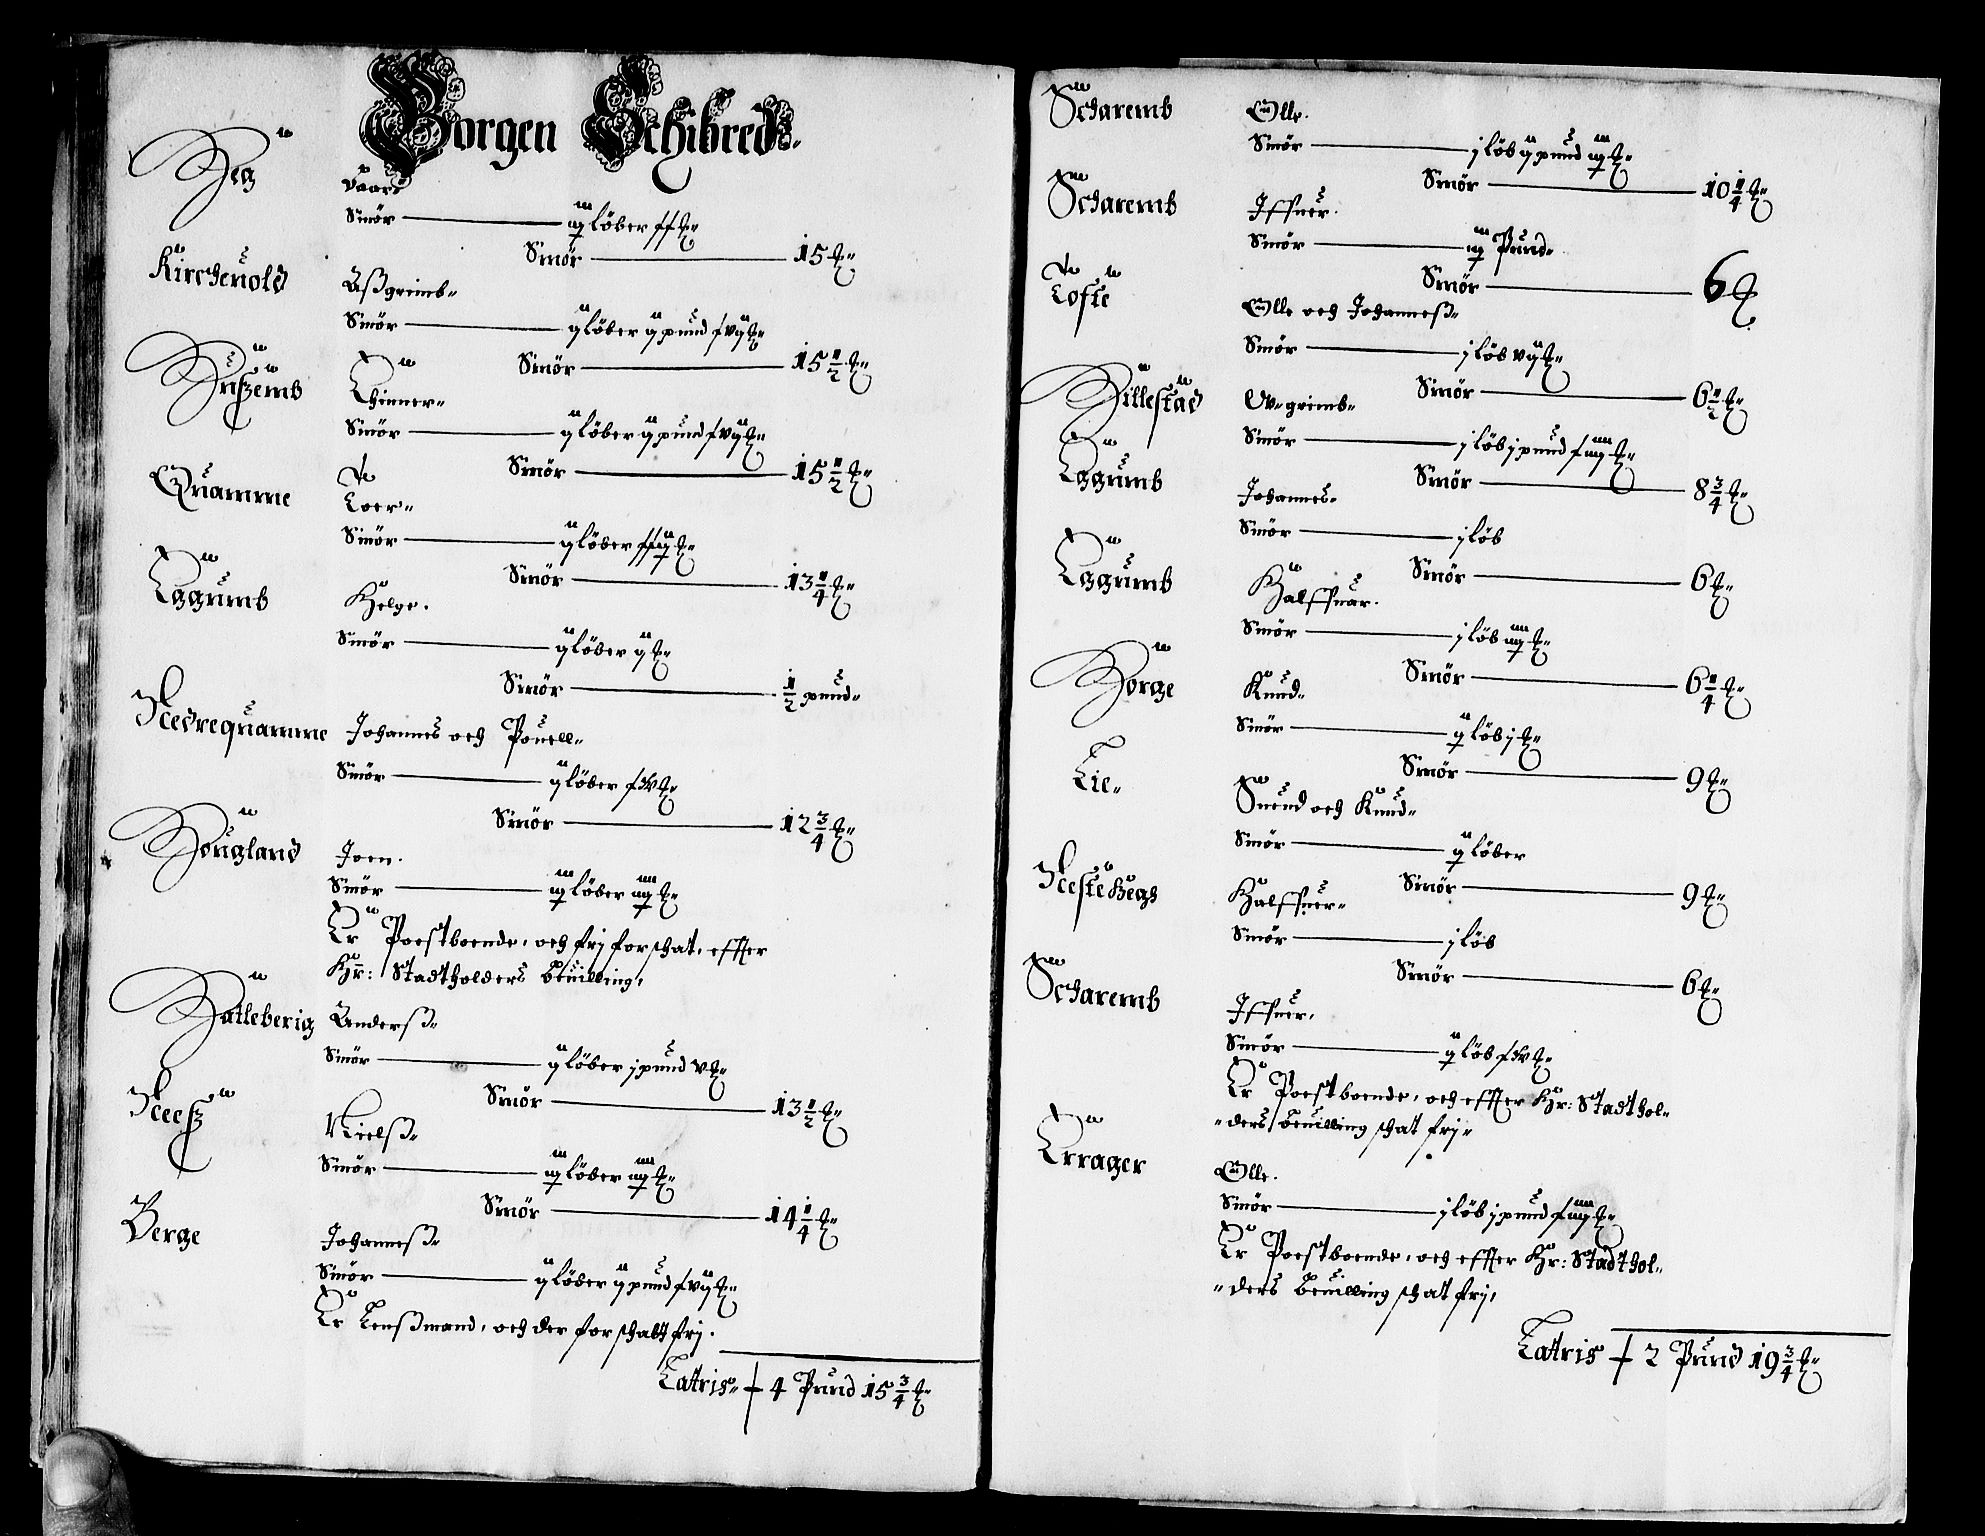 Borgen Schibred
Heg
Vaar
Smör iij löber ss ℔
Smör 15 ℔
Kirchenold
Aßgrimb
Smör ij löber ij pund s vij ℔
Smör 15 1/2 ℔
Hußemb
Ehinner
Smör ij löber ij pund s vij ℔
Smör 15 1/2 ℔
Quamme
Toer
Smör ij löber ssiij ℔
Smör 13 1/4 ℔
Eggumb
Helge.
Smör ij löber ij ℔
Smör 1/2 pund
Nedrequamme
Johannes och Pouell
Smör ij löber s xv ℔
Smör 12 3/4 ℔
Hougland
Joen.
Smör iij löber iiij ℔
Er Poestboende, och frij for schat, effter
Hr: Stadtholders beuilling,
Hatleberig
Anderß
Smör ij löber j pund v ℔
Smör 13 1/2 ℔
Neeß
Nielß
Smör iij löber iiij ℔
Smör 14 1/4 ℔
Berge
Johanneß
Smör ij löber ij pund s vij ℔
Er Lenßmand, och der for schatt frj.
Latris 4 Pund 15 3/4 ℔
Scharemb
Olle.
Smör j löb ij pund iiij ℔
Smör 10 1/4 ℔
Scharemb
Iffuer.
Smör iij Pund
Smör 6 ℔
Tofte
Olle och Johanneß
Smör j löb vij ℔
Smör 6 1/2 ℔
Hillestad
Ov-grimb
Smör j löb j pund s iiij ℔
Smör 8 3/4 ℔
Eggumb
Johannes
Smör j löb
Smör 6 ℔
Eggumb
Halffuar.
Smör j löb iiij ℔
Smör 6 1/4 ℔
Horge
Knud
Smör ij löb j ℔
Smör 9 ℔
Lie
Suend och Knud
Smör ij löber
Smör 9 ℔
Neste Hegs
Halffuer
Smör j löb
Smör 6 ℔
Scharemb
Iffuer,
Smör ij löb s xv ℔
Er Poestboende, och effter Hr: Stadthol-
-ders beuilling schat frj
Errager
Olle.
Smör j löb j pund s iiij ℔
Er Poestboende, och effter Hr: Stadthol-
-ders beuilling schat frj,
Latris 2 Pund 19 3/4 ℔